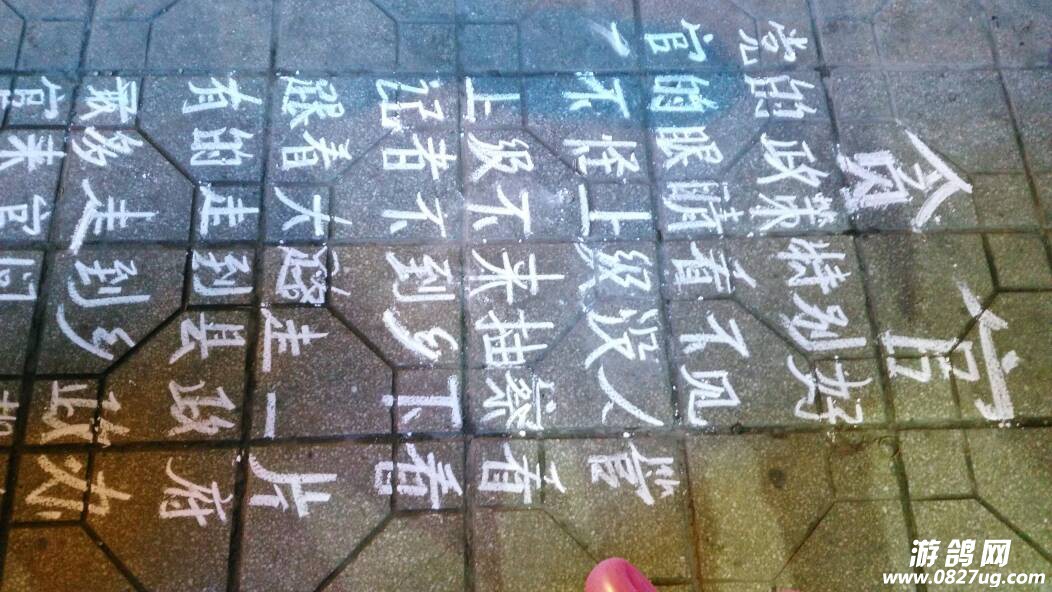 贪官
党的政策特别好
官的眼睛看不见
不怪上级没人管
上级不来抽察看
记者不到乡下看
跟着大路走一片
有的走到县政府
最多走到乡政府
官来官
游鸽网
www.0827ug.com